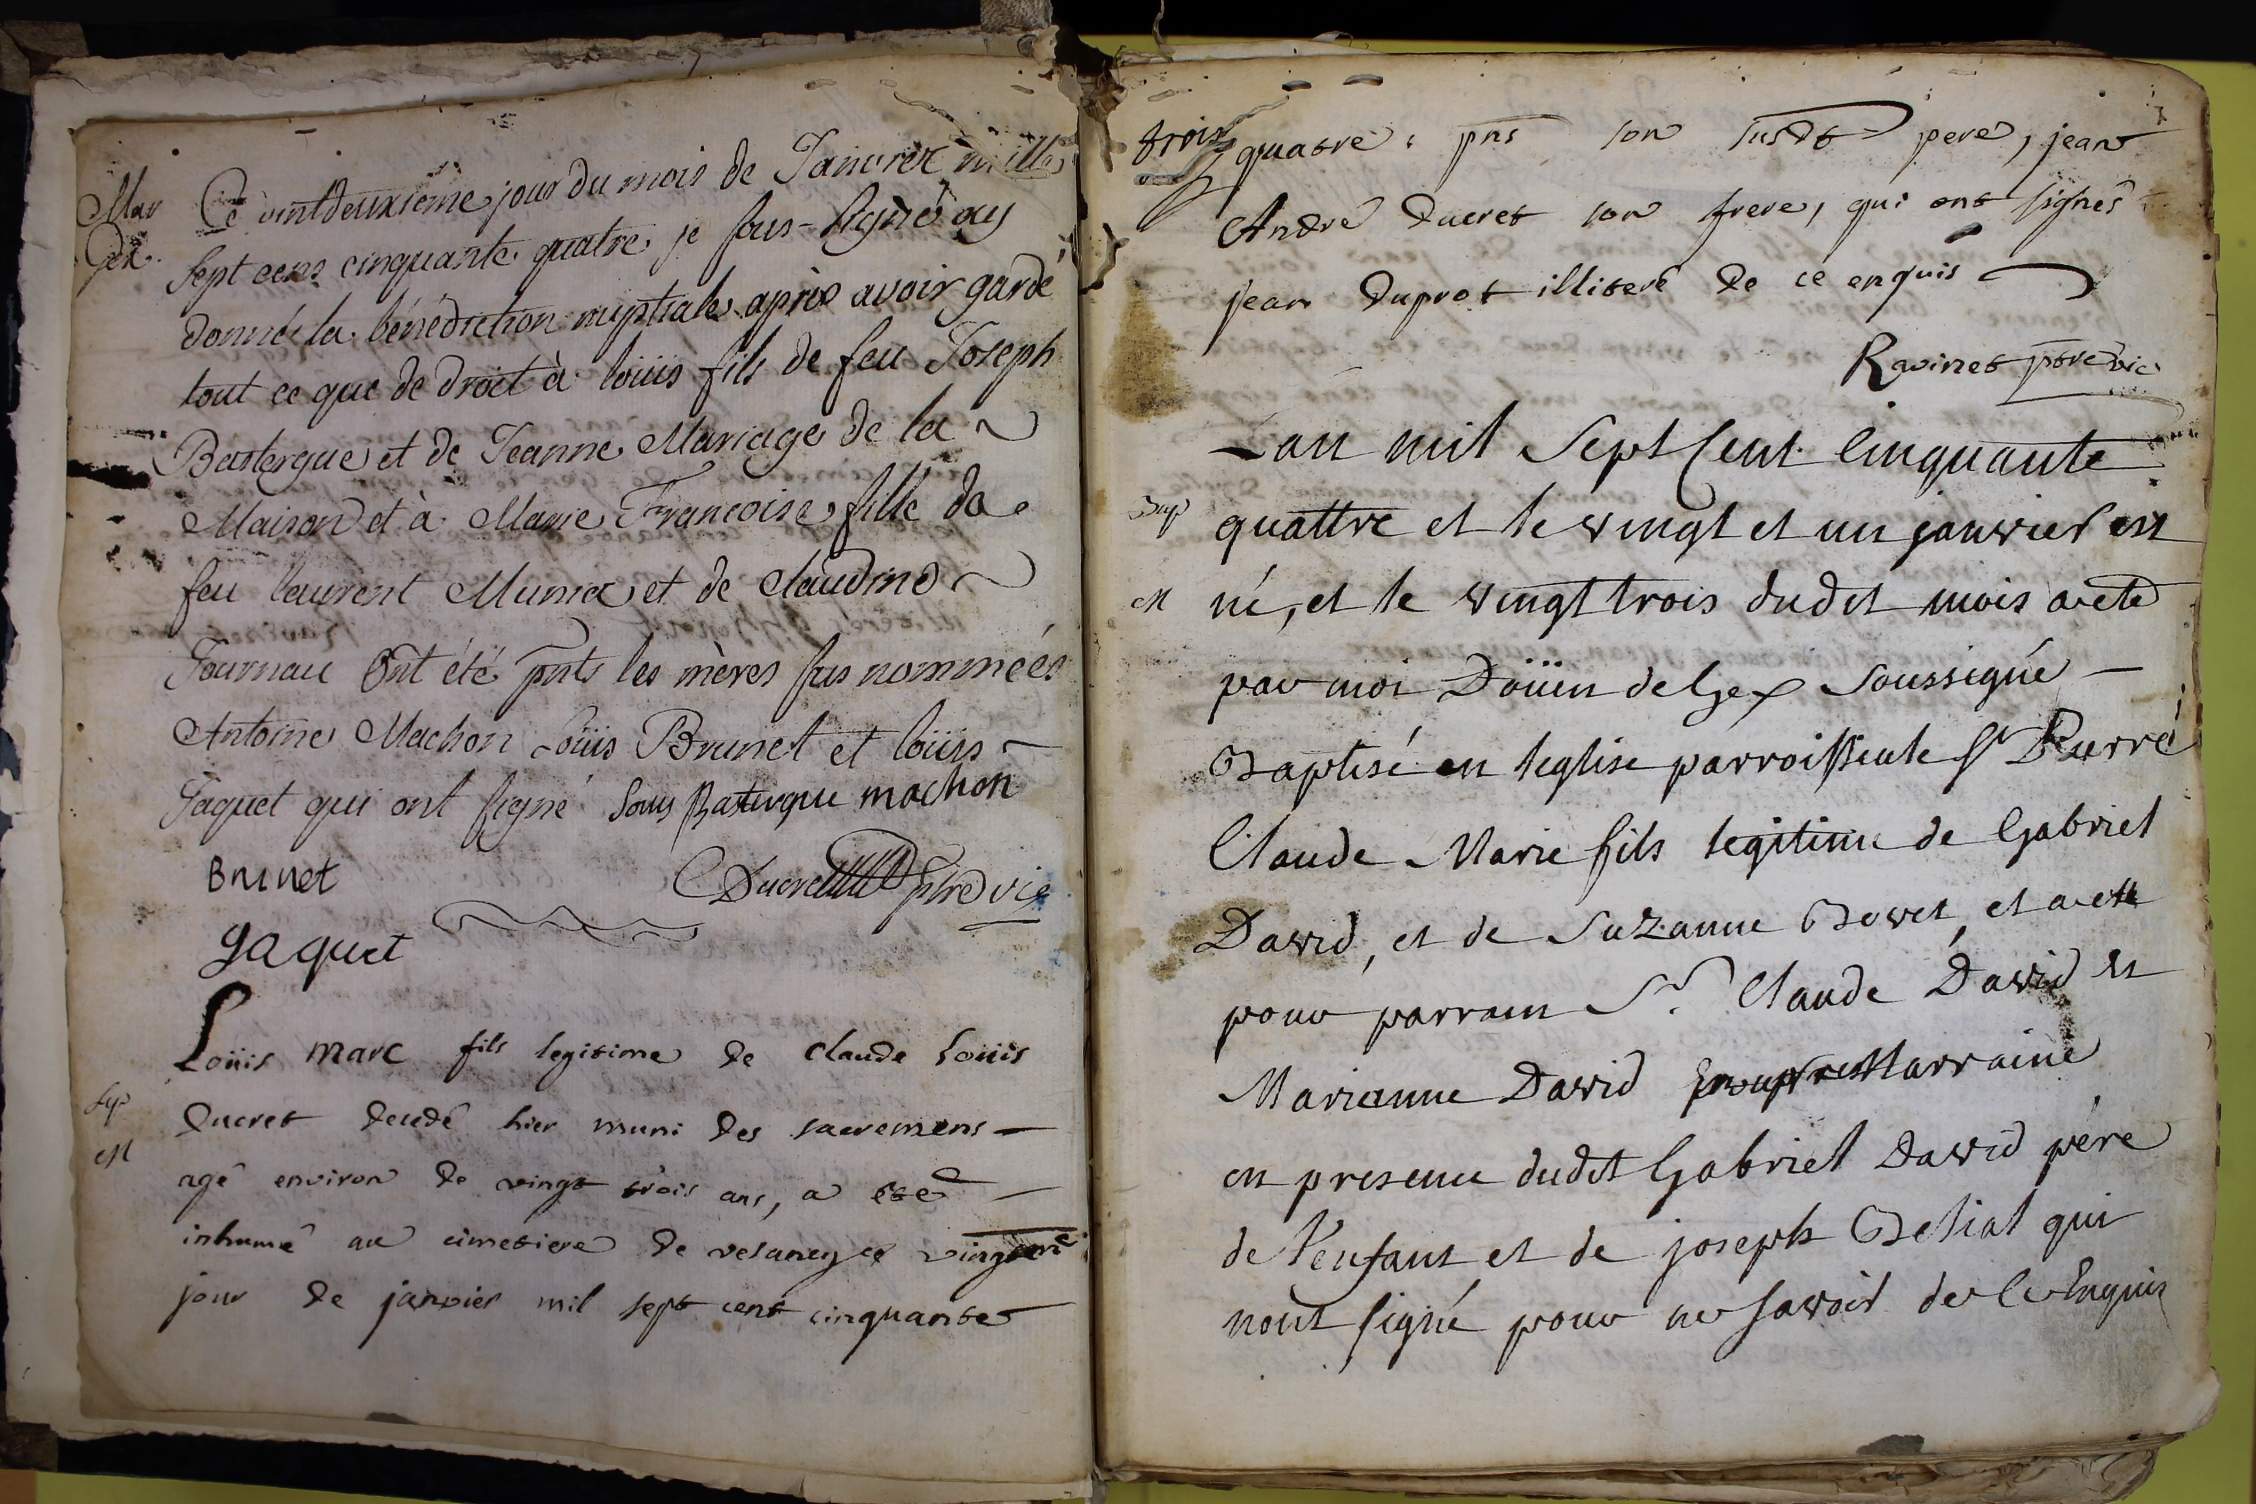 Mar
Gex.
Ce vintdeuxieme jour du mois de Janvier mille
sept cens cinquante quatre je sous-signé ay
donné la bénédiction nuptiale après avoir gardé
tout ce que de droit à loüis fils de feu Joseph
Bastergue et de Jeanne Mariage de la
Maison et à Marie Francoise fille de
feu laurent Munier et de claudine
Journau Ont été pnts les mères sus nommées
Antoine Machon Loüis Brunet et loüis
Jaquet qui ont signé Louis Bastergue machon
Brunet
Ducret ptre vic
Jaquet
Sep
M
Loüis marc fils legitime de claude Loüis
ducret decedé hier muni des sacremens
agé environ de vingt trois ans, a été
inhumé au cimetiere de vesancy ce
jour de janvier mil sept cent cinquante
trois quatre, pns son susdt pere, jean
André ducret son frere, qui ont signés
jean duprot illiteré de ce enquis
Ravinet ptre vic
Bap
M
Lan mil Sept Cent Cinquante
quattre et le vingt et un janvier est
né, et le vingt trois dudit mois a eté
par moi Doüen de Gex Soussigné
Baptisé en leglise parroissiale St Pierre
Claude Marie fils legitime de Gabriel
David, et de Suzanne Bovet, et a ette
pour parrain Sr. Claude David et
Marianne David Marraine
en presence dudit Gabriel David père
de l'enfant et de joseph Beliat qui
nont signé pour ne savoir de ce Enquis